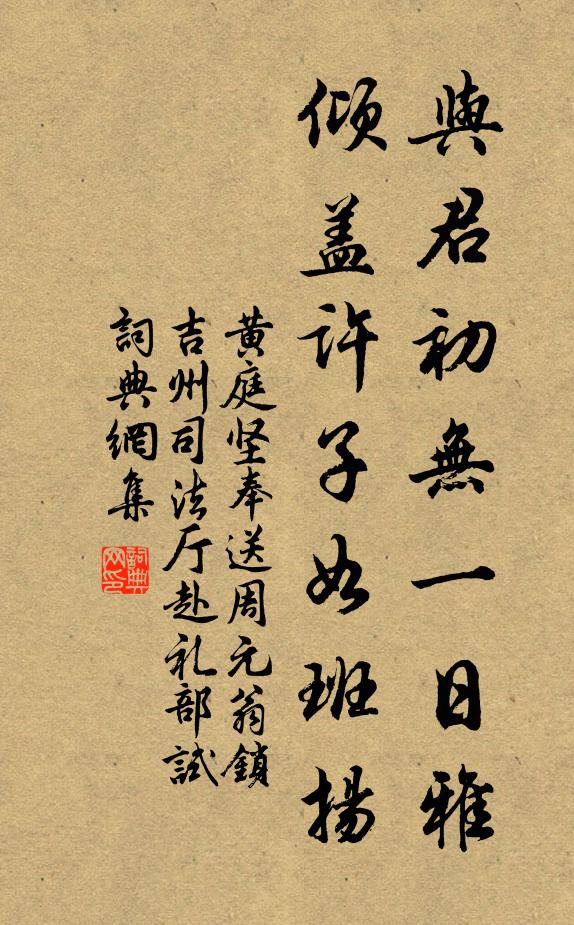 與君初無一日雅
傾盖許子如班揚
黄庭坚奉送周元翁鎖
吉州司法厅赴礼部試
詞典網集
詞典
网印